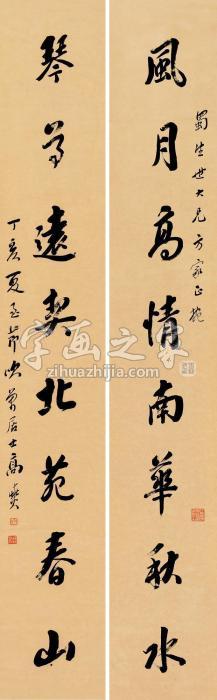 蜀生世大兄方家正捥
風月高情南華秋水
琴尊遠契北苑春山
丁亥夏至節吹萬居士高燮
字画之家
zihuazhijia.com